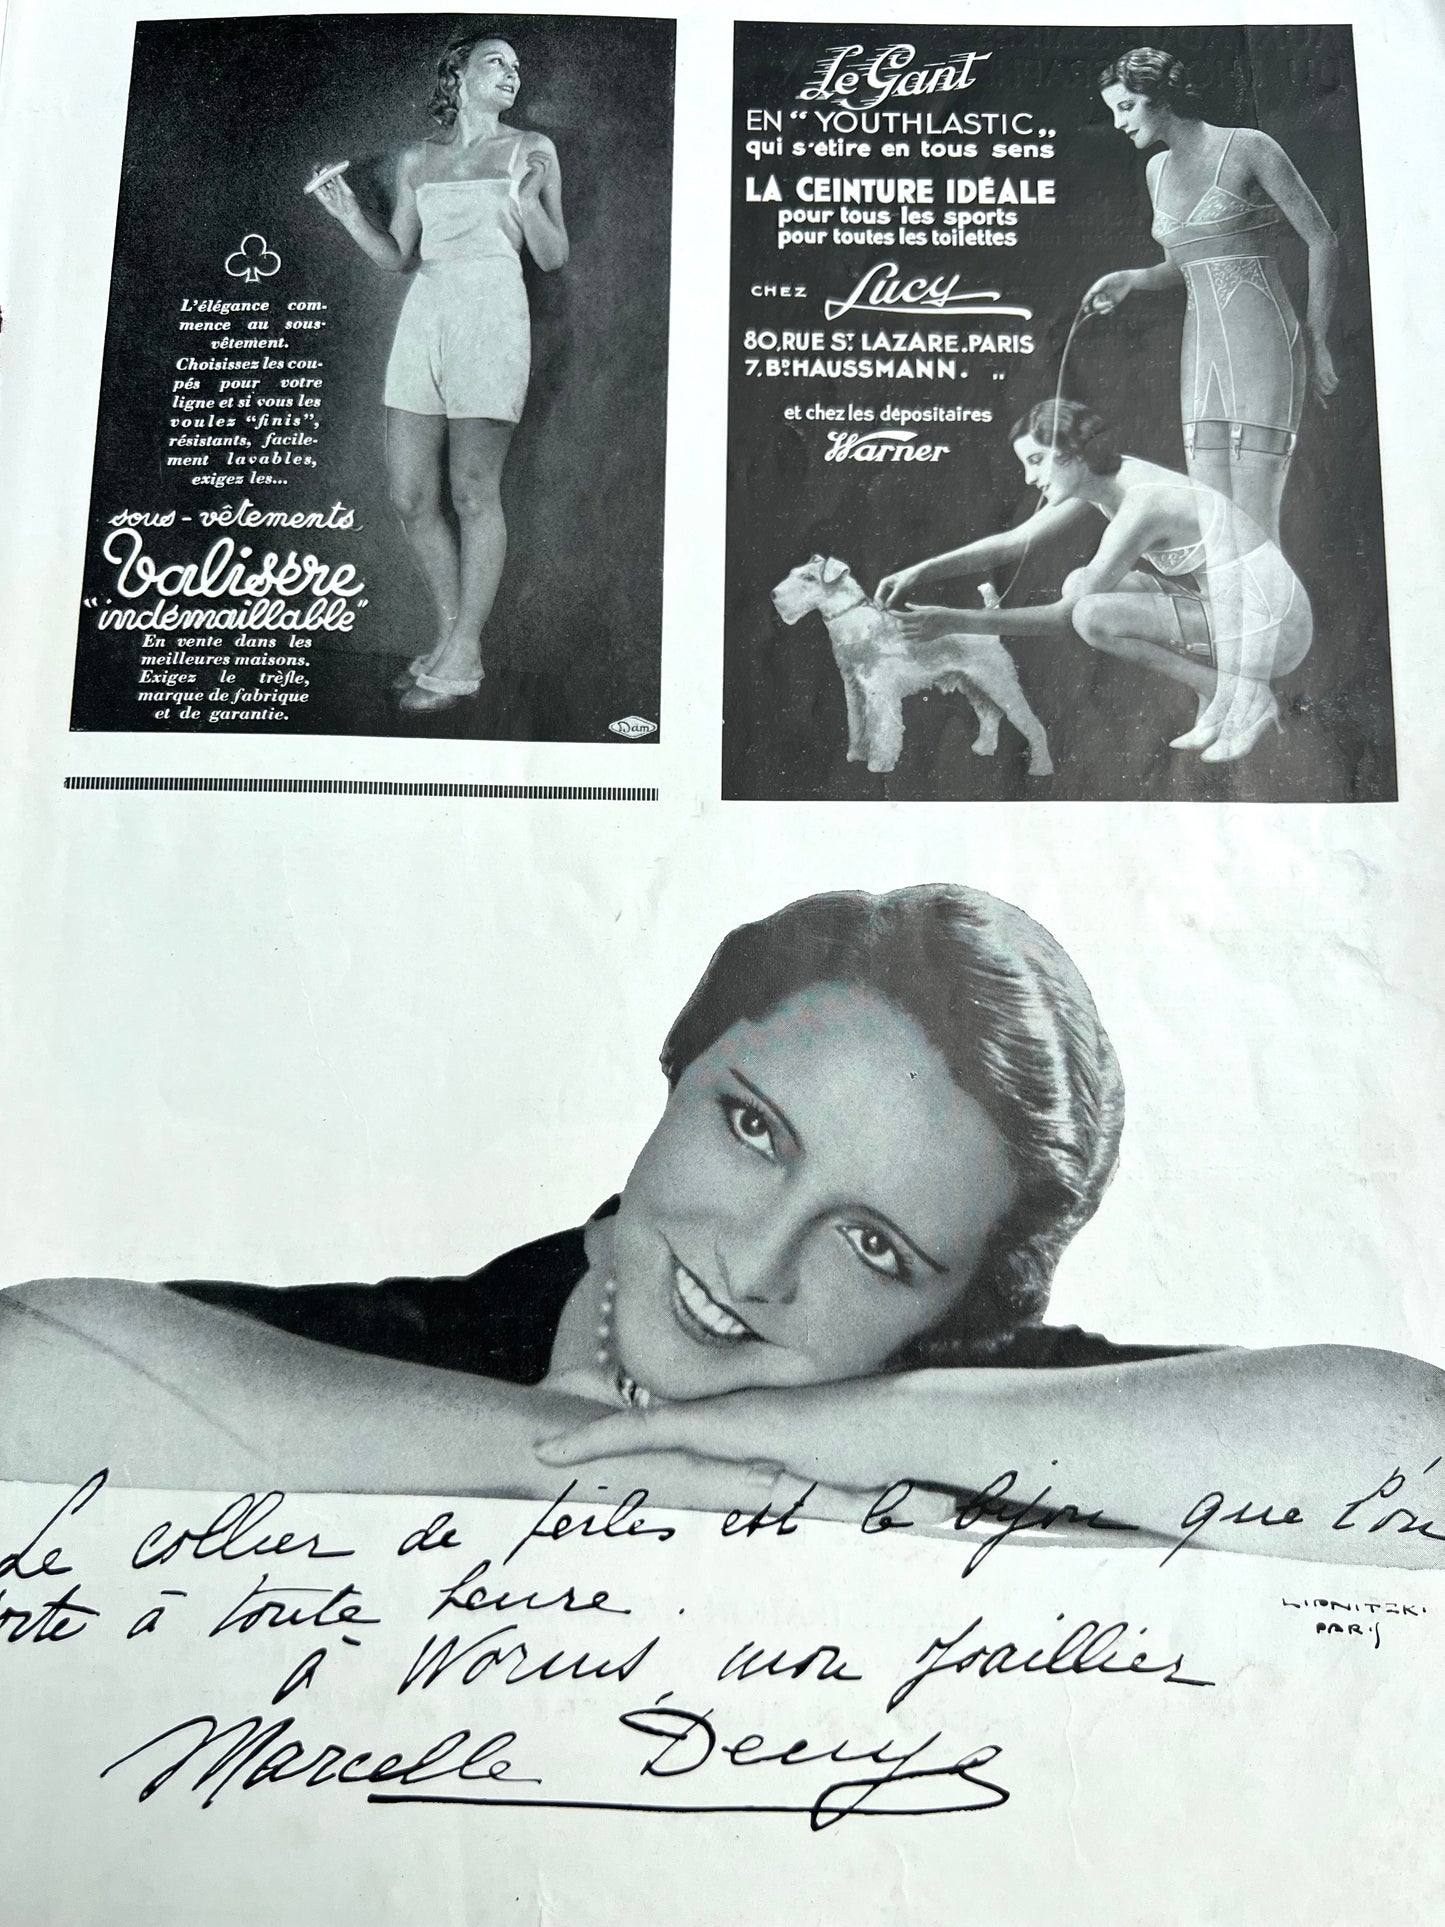 L'élégance com-
mence au sous-
vêtement.
Choisissez les cou-
pés pour votre
ligne et si vous les
voulez "finis",
résistants, facile-
ment lavables,
exigez les...
sous-vêtements
Valisère
"indémaillable"
En vente dans les
meilleures maisons.
Exigez le trèfle,
marque de fabrique
et de garantie.
Dam
Le Gant
EN “ YOUTHLASTIC „
qui s'étire en tous sens
LA CEINTURE IDÉALE
pour tous les sports
pour toutes les toilettes
CHEZ Lucy
80, RUE ST LAZARE. PARIS
7, BD HAUSSMANN. „
et chez les dépositaires
Warner
Le collier de perles est le bijou que l'on
orte à toute heure.
à Worms, mon Joaillier
Marcelle Denya
LIPNITZKI
PARIS